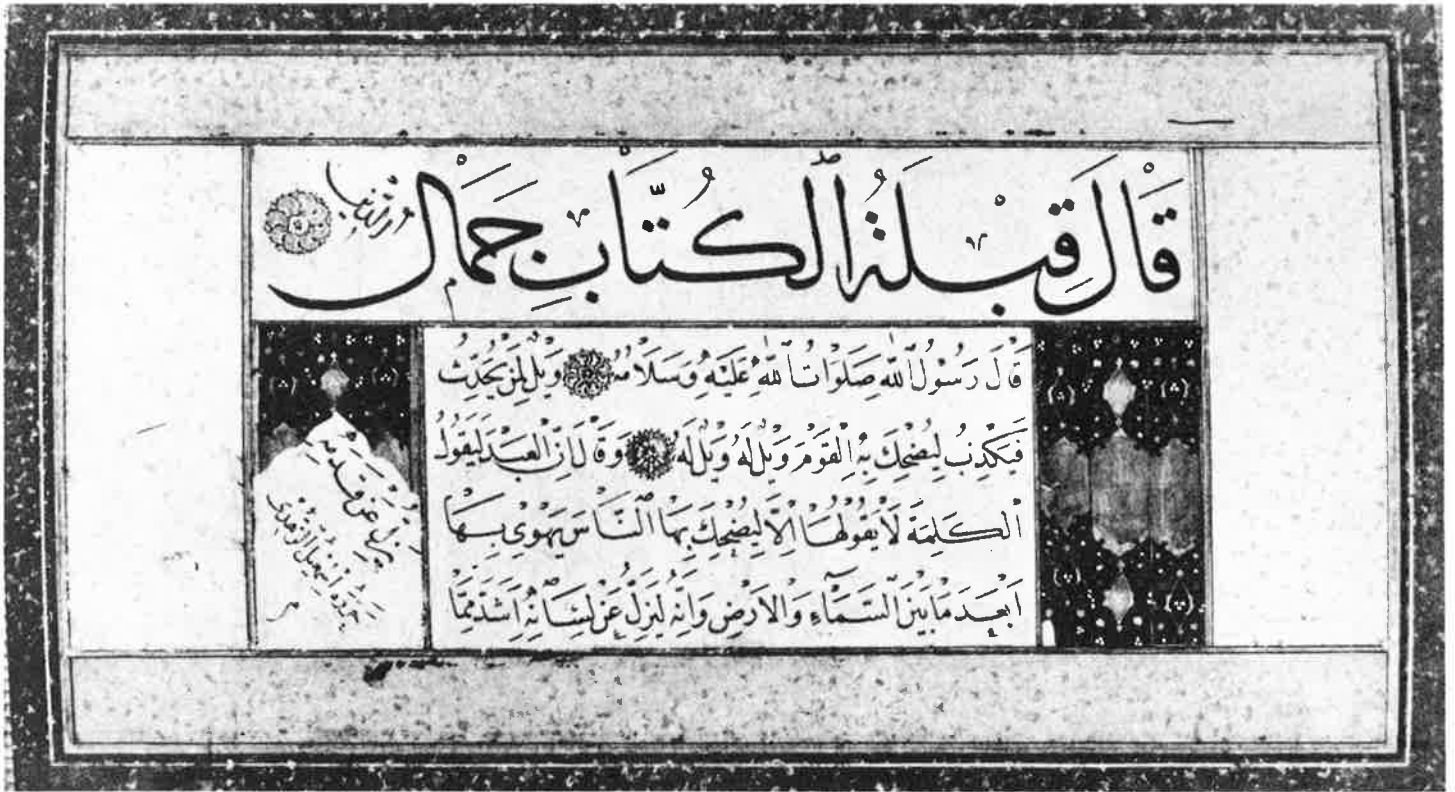 قَالَ قِبْلَةُ ٱلكُتَّابِ جَمَالُ الدِّينِ
قَالَ رَسُولُ ٱللّٰهِ صَلَوَاتُ ٱللّٰهِ عَلَيْهِ وَسَلَامُهُ وَيْلٌ لِمَنْ يُحَدِّثُ
فَيَكْذِبُ لِيُضْحِكَ بِهِ ٱلْقَوْمَ وَيْلٌ لَهُ وَيْلٌ لَهُ وَقَالَ اِنَّ الْعَبْدَ لَيَقُولُ
ٱلْكَلِمَةَ لَا يَقُولُهَا اِلَّا لِيُضْحِكَ بِهَا ٱلنَّاسَ يَهْوِى بِهَا
اَبْعَدَ مَا بَيْنَ ٱلسَّمَآءِ وَالْاَرْضِ وَاِنَّهُ لَيَزِلُّ عَنْ لِسَانِهِ اَشَدَّ مِمَّا
يَزِلُّ عَنْ قَدَمِهِ